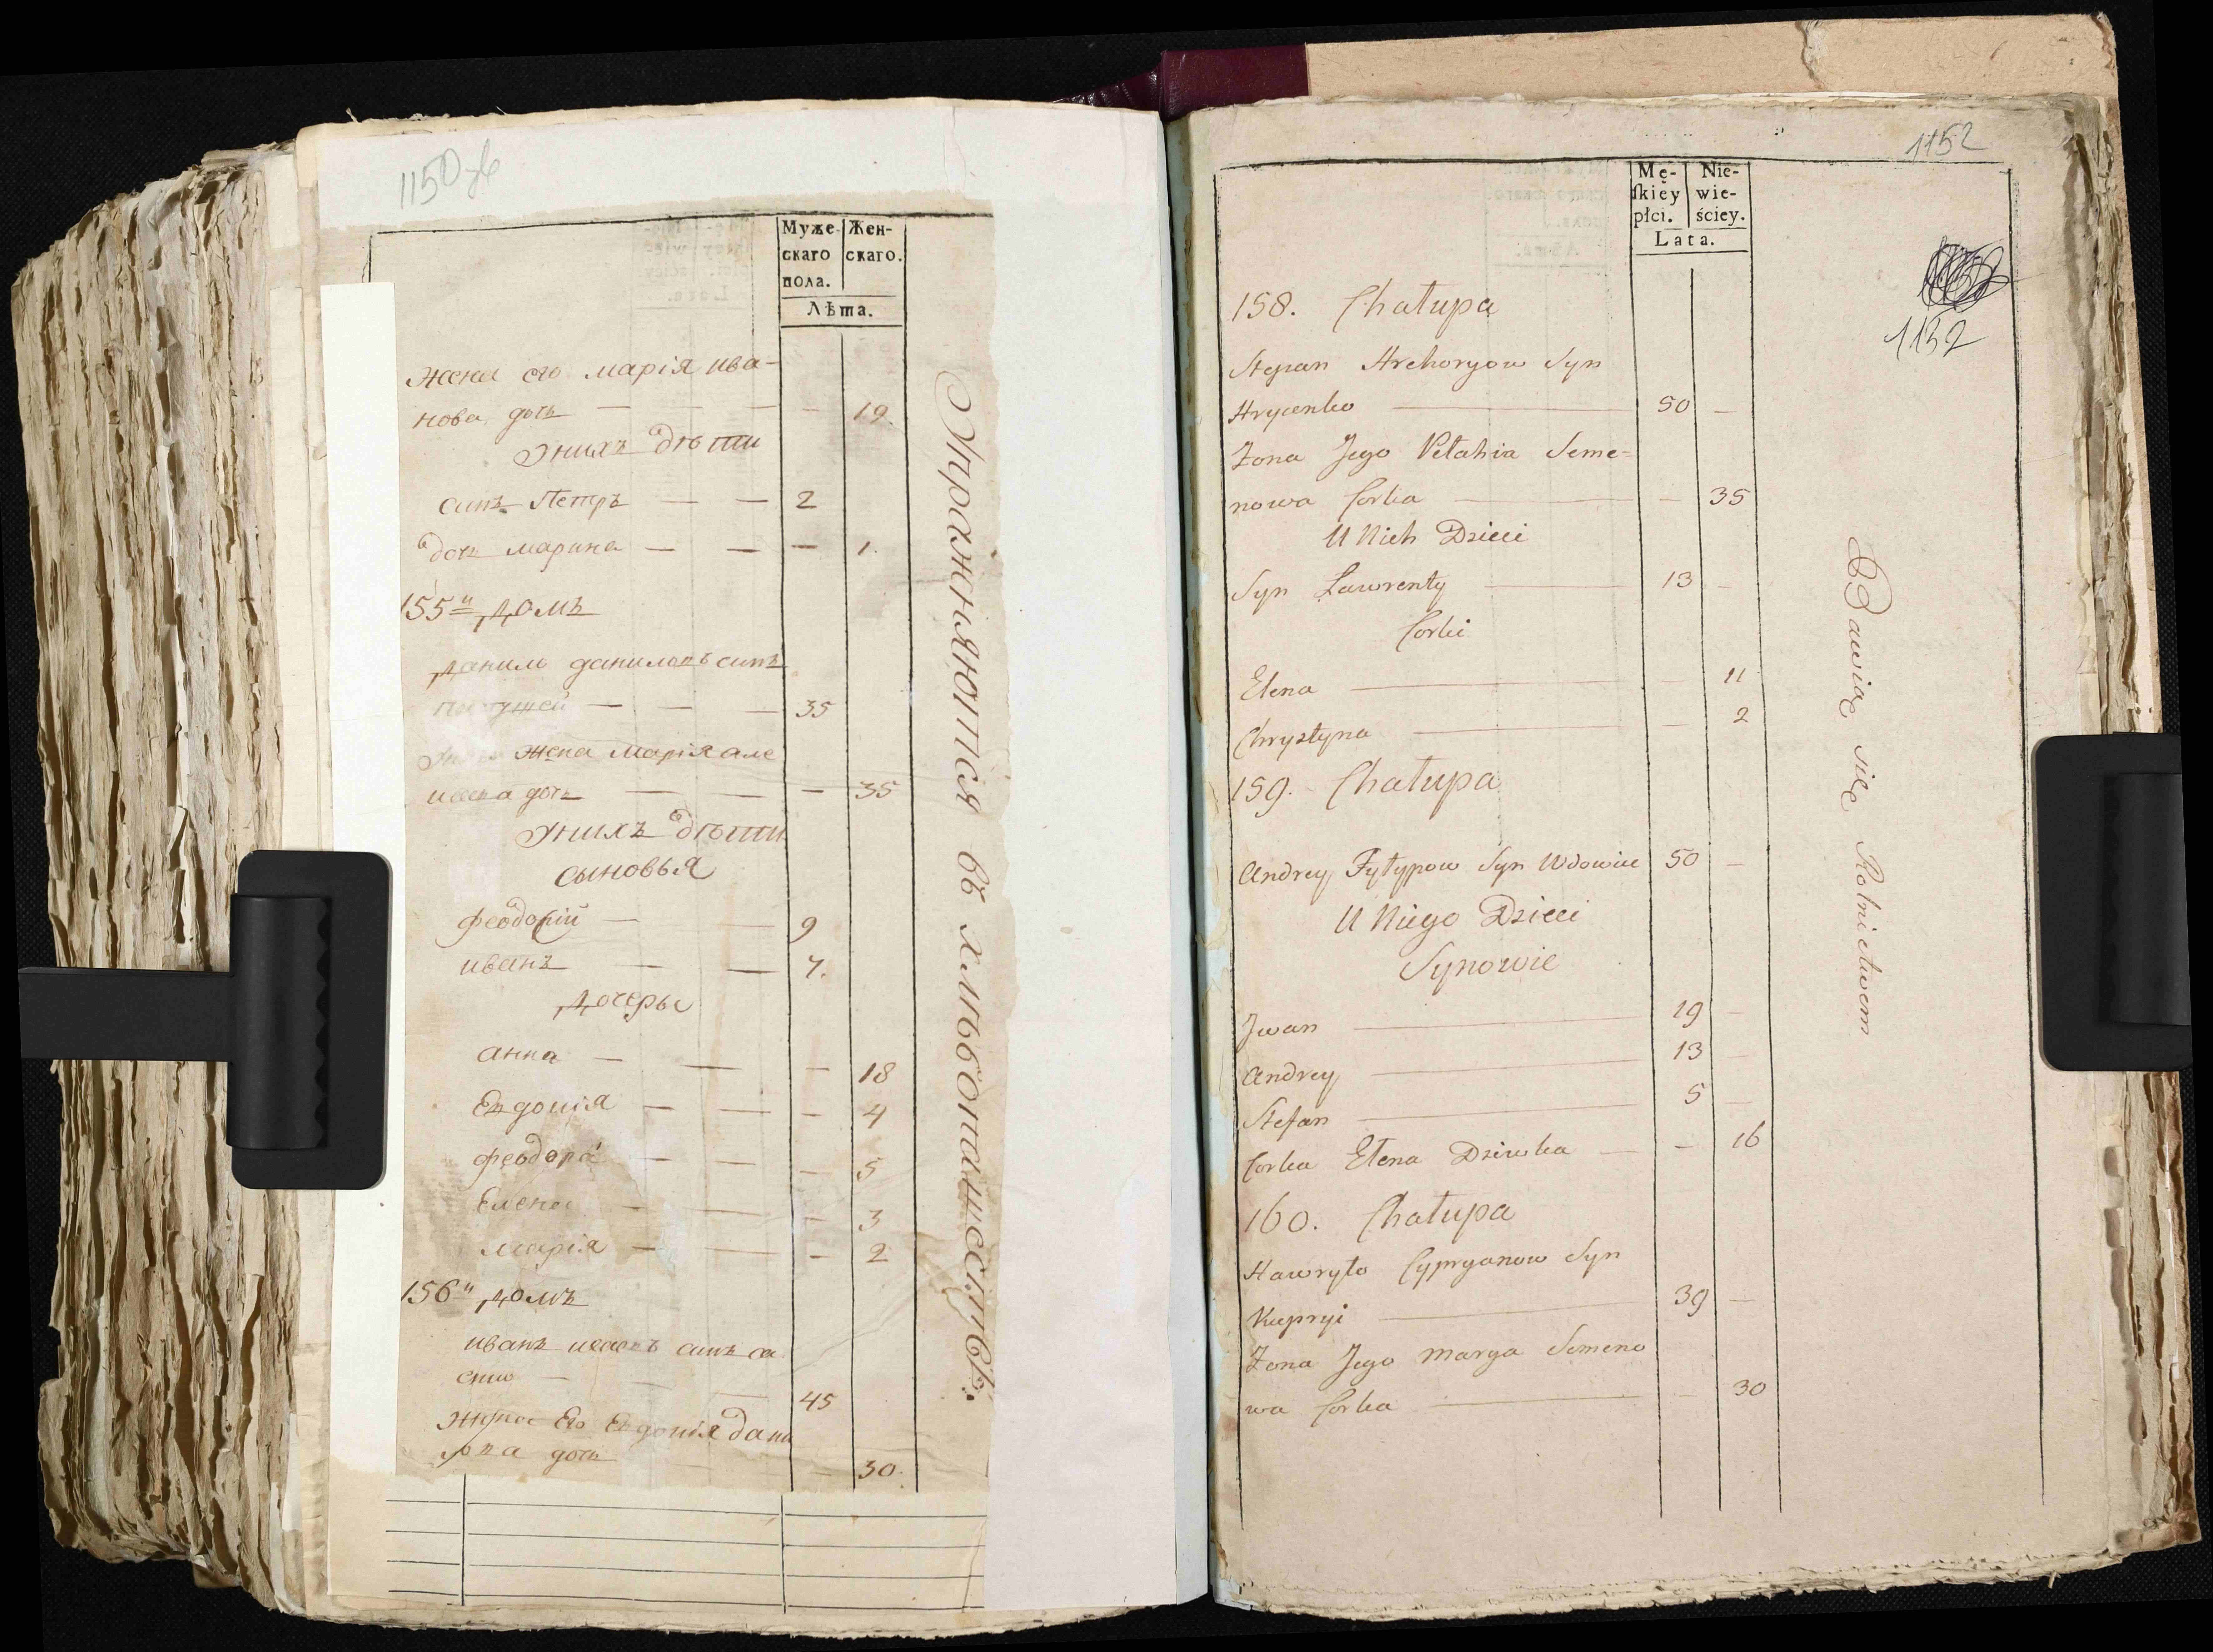 1150
Муже-
скаго
пола.
Жен-
скаго.
Лѣта.
жена его марія ива-
нова дочь — — — — 19.
Унихъ дѣти
синъ Петръ — — 2
дочь марина — — — 1.
155й домъ
данило даниловъ синъ
— — — 35
жена марія але
дочь — — — 35
Унихъ дѣти
сыновья
феодосій — — 9
иванъ — — 7.
дочеры
анна — — — 18
Евдокія — — — 4
феодора — — — 5
Елена — — — 3
марія — — — 2
156й домъ
иванъ синъ са
— — — 45
жена Его Евдокія дани
лова дочь — 30.
Упражняются въ хлѣбопашествѣ.
1152
Mę-
skiey
płci.
Nie-
wie-
ściey.
Lata.
1152
158. Chałupa
Stepan Hrehoryow Syn
Hrycenko — 50 —
Żona Jego Pełahia Seme-
nowa Corka — — 35
U Nich Dzieci
Syn Ławrenty — 13 —
Corki
Elena — — 11
Chrystyna — — 2
159. Chałupa
Andrey Fyłypow Syn Wdowiec 50 —
U Niego Dzieci
Synowie
Jwan — 19 —
Andrey — 13 —
Stefan — 5 —
Corka Elena Dziewka — — 16
160. Chałupa
Hawryło Cypryanow Syn
Kupryi — 39 —
Żona Jego Marya Semeno
wa Corka — — 30
Bawią się Rolnictwem